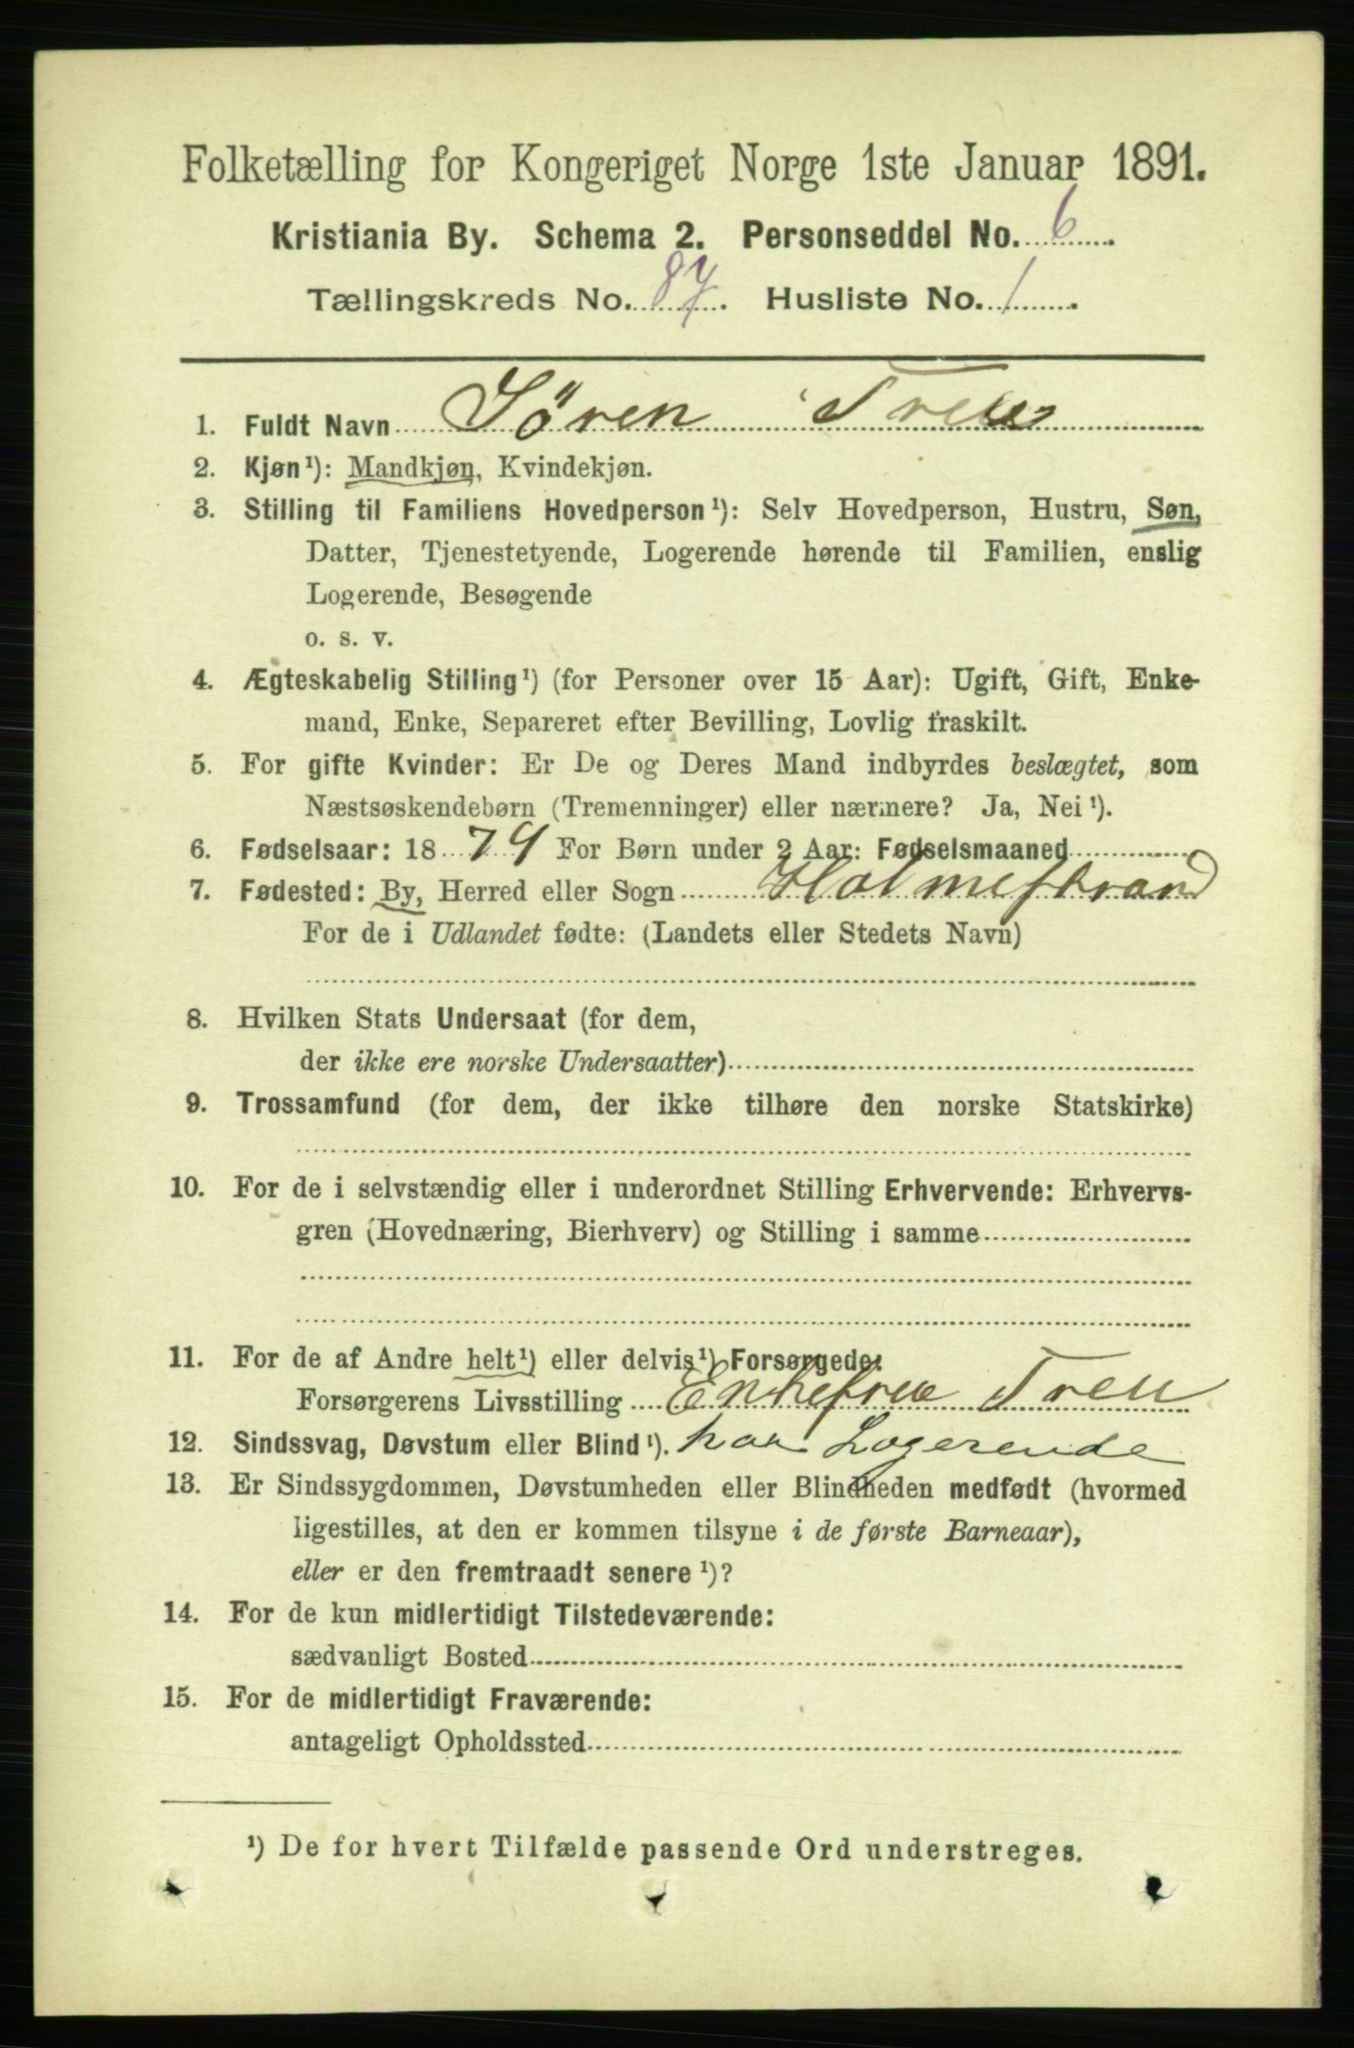 Folketælling for Kongeriget Norge 1ste Januar 1891.
Kristiania By. Schema 2. Personseddel No. 6.
Tællingskreds No. 87. Husliste No. 1.
1. Fuldt Navn Søren Treu
2. Kjøn¹): Mandkjøn, Kvindekjøn.
3. Stilling til Familiens Hovedperson¹): Selv Hovedperson, Hustru, Søn,
Datter, Tjenestetyende, Logerende hørende til Familien, enslig
Logerende, Besøgende
o. s. v.
4. Ægteskabelig Stilling¹) (for Personer over 15 Aar): Ugift, Gift, Enke-
mand, Enke, Separeret efter Bevilling, Lovlig fraskilt.
5. For gifte Kvinder: Er De og Deres Mand indbyrdes beslægtet, som
Næstsøskendebørn (Tremenninger) eller nærmere? Ja, Nei¹).
6. Fødselsaar: 1879 For Børn under 2 Aar: Fødselsmaaned
7. Fødested: By, Herred eller Sogn Holmestrand
For de i Udlandet fødte: (Landets eller Stedets Navn)
8. Hvilken Stats Undersaat (for dem,
der ikke ere norske Undersaatter)
9. Trossamfund (for dem, der ikke tilhøre den norske Statskirke)
10. For de i selvstændig eller i underordnet Stilling Erhvervende: Erhvervs-
gren (Hovednæring, Bierhverv) og Stilling i samme
11. For de af Andre helt¹) eller delvis¹) Forsørgede:
Forsørgerens Livsstilling Enkefru Treu
12. Sindssvag, Døvstum eller Blind¹). har Logerende
13. Er Sindssygdommen, Døvstumheden eller Blindheden medfødt (hvormed
ligestilles, at den er kommen tilsyne i de første Barneaar),
eller er den fremtraadt senere¹)?
14. For de kun midlertidigt Tilstedeværende:
sædvanligt Bosted
15. For de midlertidigt Fraværende:
antageligt Opholdssted
¹) De for hvert Tilfælde passende Ord understreges.